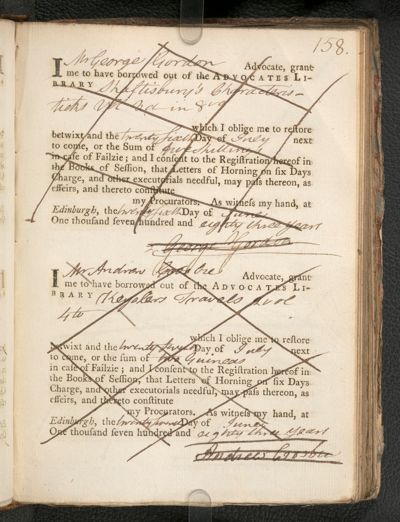 158.
I Mr George Gordon Advocate, grant
me to have borrowed out of the ADVOCATES LI-
BRARY Shaftisbury's Characteris-
ticks Vol 2d in 8vo
which I oblige me to reſtore
betwixt and the twenty sixth Day of July next
to come, or the Sum of five shillings
in caſe of Failzie; and I conſent to the Regiſtration hereof in
the Books of Seſſion, that Letters of Horning on ſix Days
Charge, and other executorials needful, may paſs thereon, as
effeirs, and thereto conſtitute
my Procurators. As witneſs my hand, at
Edinburgh, the twenty sixth Day of June
One thouſand ſeven hundred and eighty three years
George Gordon
I Mr Andrew Crosbie Advocate, grant
me to have borrowed out of the ADVOCATES LI-
BRARY Keyslers Travels
4to
which I oblige me to reſtore
betwixt and the twenty Day of July next
to come, or the ſum of two Guineas
in caſe of Failzie; and I conſent to the Regiſtration hereof in
the Books of Seſſion, that Letters of Horning on ſix Days
Charge, and other executorials needful, may paſs thereon, as
effeirs, and thereto conſtitute
my Procurators. As witneſs my hand, at
Edinburgh, the twenty Day of June
One thouſand ſeven hundred and eighty three years
Andrew Crosbie